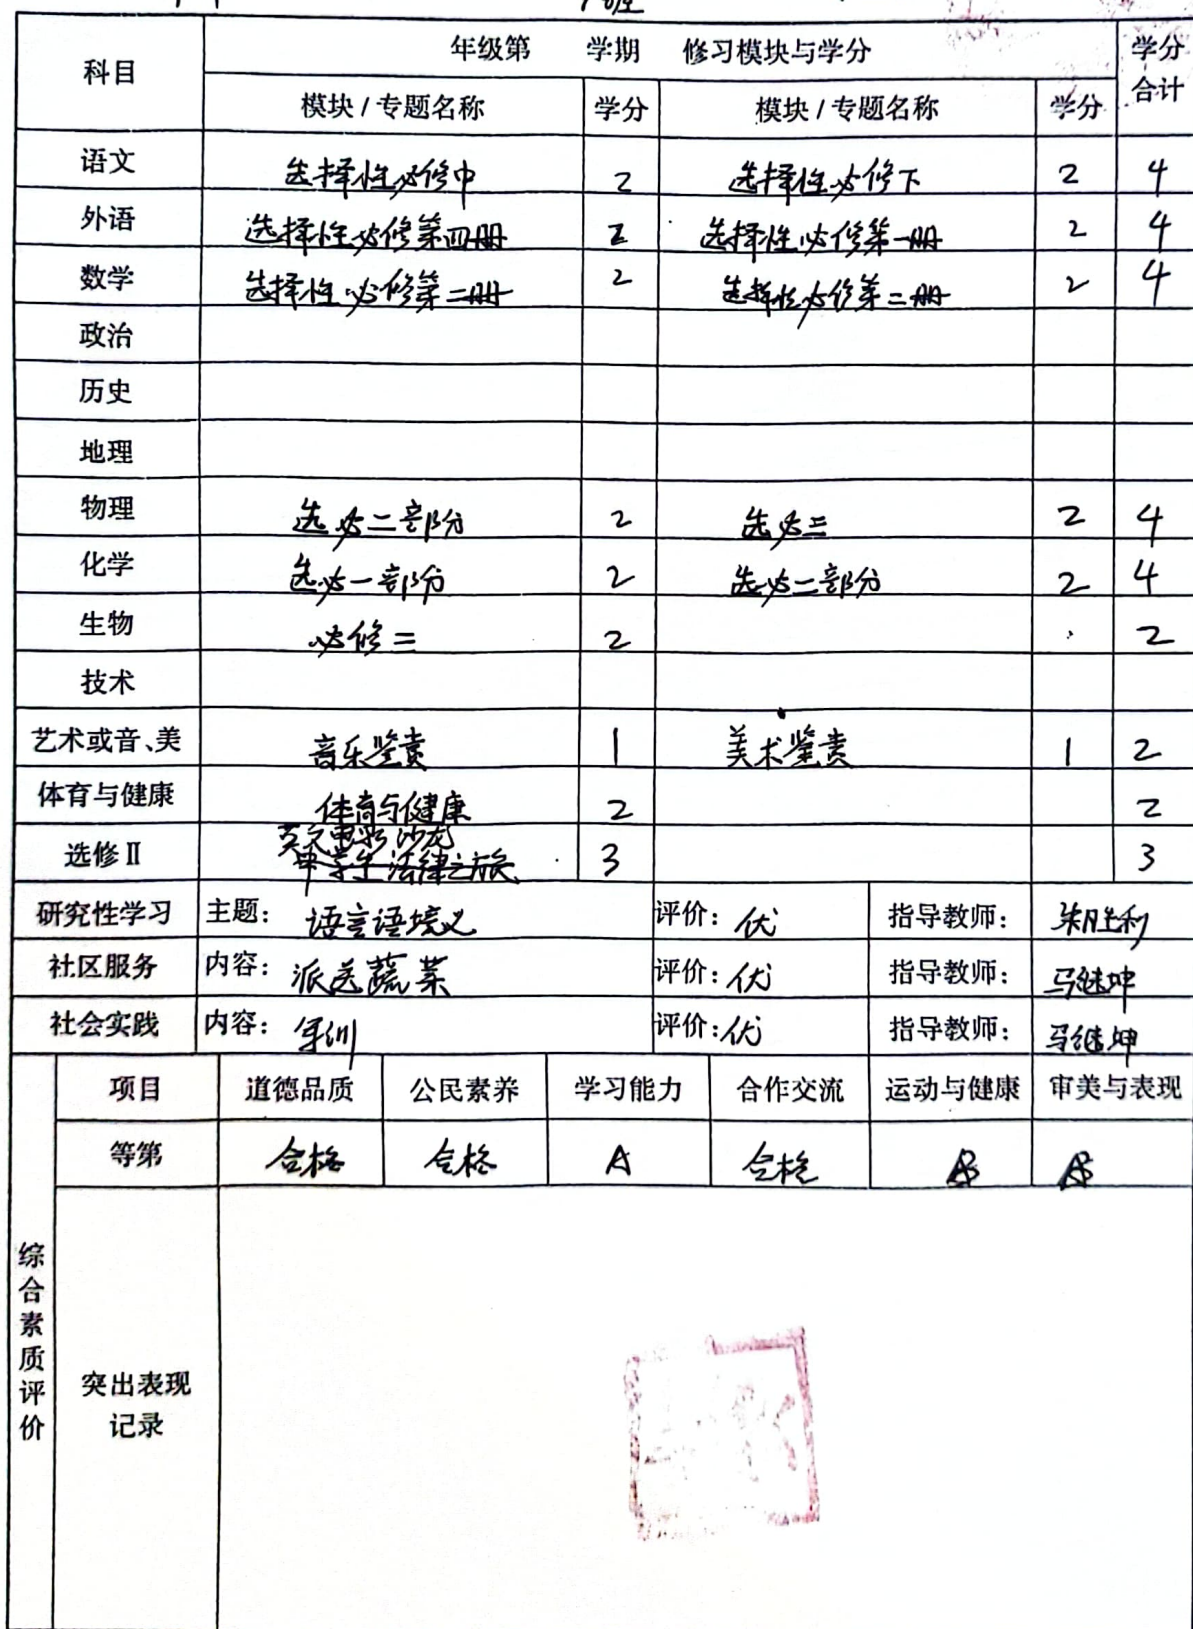 科目 年级第 学期 修习模块与学分 学分合计
模块/专题名称 学分 模块/专题名称 学分
语文 选择性必修中 2 选择性必修下 2 4
外语 选择性必修第四册 2 选择性必修第一册 2 4
数学 选择性必修第二册 2 选择性必修第二册 2 4
政治
历史
地理
物理 选必二部分 2 选必三 2 4
化学 选必一部分 2 选必二部分 2 4
生物 必修二 2 2
技术
艺术或音、美 音乐鉴赏 1 美术鉴赏 1 2
体育与健康 体育与健康 2 2
英文电影沙龙
选修Ⅱ 中学生法律之旅 3 3
研究性学习 主题: 语言语境义 评价: 优 指导教师: 朱胜利
社区服务 内容: 派送蔬菜 评价: 优 指导教师: 马继坤
社会实践 内容: 军训 评价: 优 指导教师: 马继坤
综合素质评价
项目 道德品质 公民素养 学习能力 合作交流 运动与健康 审美与表现
等第 合格 合格 A 合格
突出表现
记录